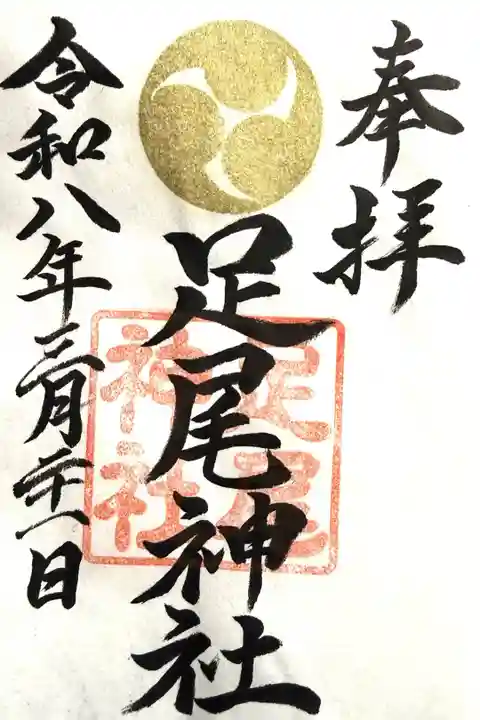 奉拝
足尾神社
足尾神社
令和八年三月二十一日